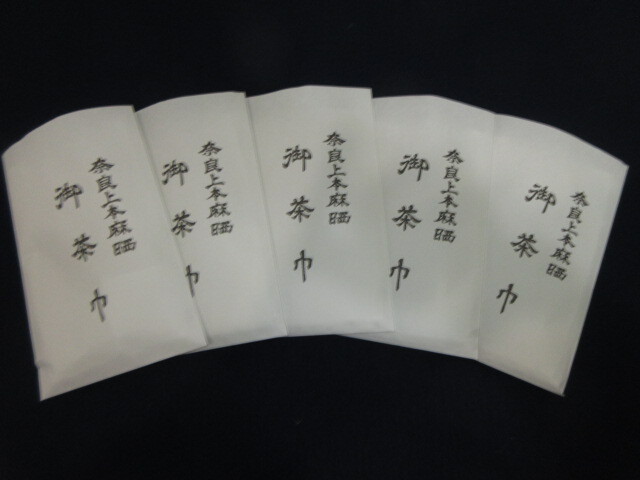 奈良上本麻晒
御茶巾
奈良上本麻晒
御茶巾
奈良上本麻晒
御茶巾
奈良上本麻晒
御茶巾
奈良上本麻晒
御茶巾